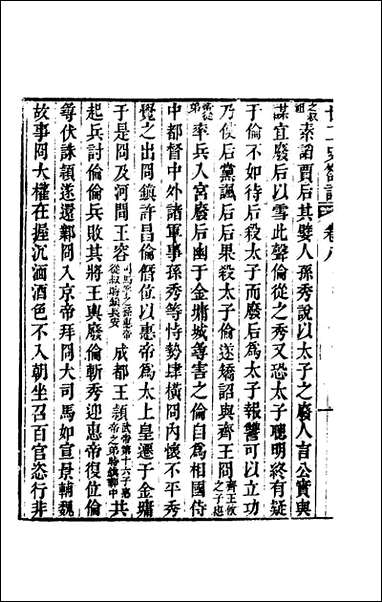 廿二史劄記 卷八
之叔祖素諂賈后其嬖人孫秀說以太子之廢人言公實與
謀宜廢后以雪此聲倫從之秀又恐太子聰明終有疑
于倫不如待后殺太子而廢后爲太子報讐可以立功
乃使后黨諷后后果殺太子倫遂矯詔與齊王冏齊王攸之子惠
帝從弟率兵入宮廢后幽于金墉城尋害之倫自爲相國侍
中都督中外諸軍事孫秀等恃勢肆橫冏內懷不平秀
覺之出冏鎮許昌倫僭位以惠帝爲太上皇遷于金墉
于是冏及河間王容司馬孚之孫惠帝從叔時鎮長安成都王穎武帝第十六子惠帝之弟時鎮鄴中共
起兵討倫倫兵敗其將王輿廢倫斬秀迎惠帝復位倫
尋伏誅穎遂還鄴冏入京帝拜冏大司馬如宣景輔魏
故事冏大權在握沉湎酒色不入朝坐召百官恣行非